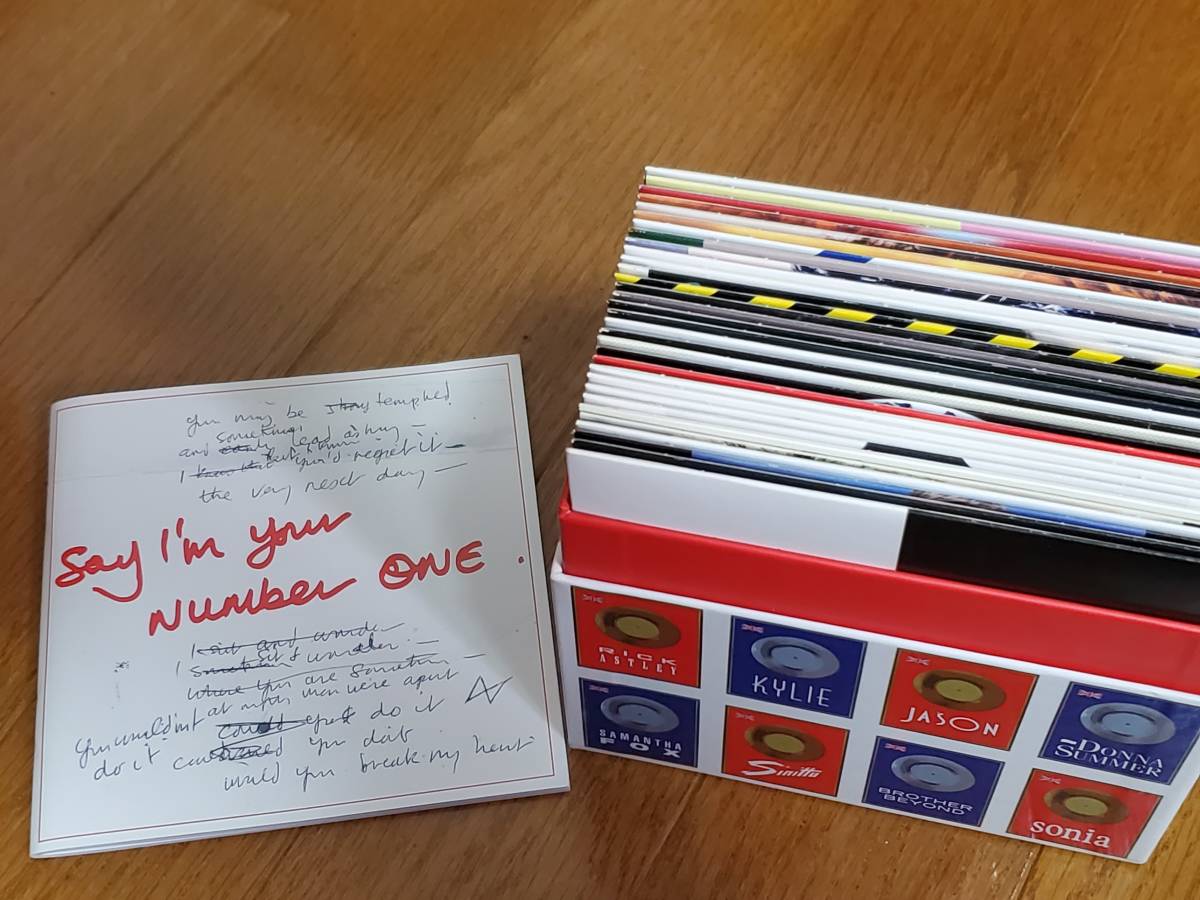 you may be tempted
something
and lead astray —
but you'd regret it —
the very next day —
Say I'm your
Number ONE.
I sit and wonder
I sit & wonder —
where you are sometimes —
at nights when we're apart
you wouldn't do it
do it could you do it
would you break my heart
RICK
ASTLEY
KYLIE
JASON
DONNA
SUMMER
SAMANTHA
FOX
Sinitta
BROTHER
BEYOND
sonia